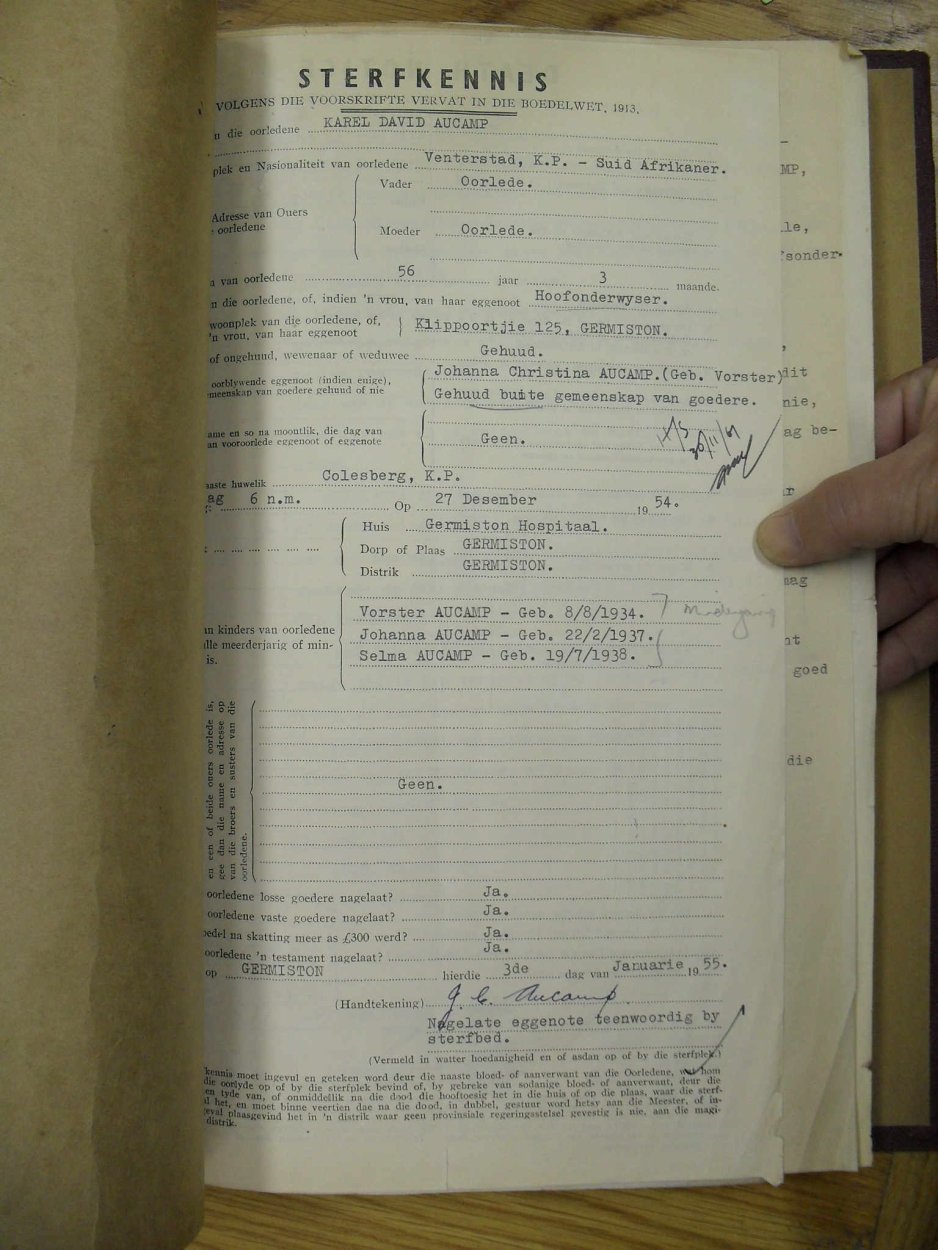 STERFKENNIS
VOLGENS DIE VOORSKRIFTE VERVAT IN DIE BOEDELWET, 1913.
n die oorledene KAREL DAVID AUCAMP
plek en Nasionaliteit van oorledene Venterstad, K.P. - Suid Afrikaner.
Vader Oorlede.
Adresse van Ouers
oorledene
Moeder Oorlede.
van oorledene 56 jaar 3 maande.
n die oorledene, of, indien 'n vrou, van haar eggenoot Hoofonderwyser.
woonplek van die oorledene, of,
'n vrou, van haar eggenoot Klippoortjie 125, GERMISTON.
of ongehuud, wewenaar of weduwee Gehuud.
oorblywende eggenoot (indien enige), Johanna Christina AUCAMP.(Geb. Vorster)
meenskap van goedere gehuud of nie Gehuud buite gemeenskap van goedere.
ame en so na moontlik, die dag van
an vooroorlede eggenoot of eggenote Geen.
aaste huwelik Colesberg, K.P.
ag 6 n.m. Op 27 Desember 19 54.
Huis Germiston Hospitaal.
Dorp of Plaas GERMISTON.
Distrik GERMISTON.
Vorster AUCAMP - Geb. 8/8/1934.
an kinders van oorledene Johanna AUCAMP - Geb. 22/2/1937.
lle meerderjarig of min- Selma AUCAMP - Geb. 19/7/1938.
is.
en een of beide ouers oorlede is,
gee dan die name en adresse op
van die broers en susters van die
oorledene.
Geen.
oorledene losse goedere nagelaat? Ja.
oorledene vaste goedere nagelaat? Ja.
oedel na skatting meer as £300 werd? Ja.
oorledene 'n testament nagelaat? Ja.
op GERMISTON hierdie 3de dag van Januarie 19 55.
(Handtekening) J. C. Aucamp.
Nagelate eggenote teenwoordig by
sterfbed.
(Vermeld in watter hoedanigheid en of asdan op of by die sterfplek.)
kennis moet ingevul en geteken word deur die naaste bloed- of aanverwant van die Oorledene, wat hom
die oorlyde op of by die sterfplek bevind of, by gebreke van sodanige bloed- of aanverwant, deur die
en tyde van, of onmiddellik na die dood die hooftoesig het in die huis of op die plaas, waar die sterf-
l het, en moet binne veertien dae na die dood, in dubbel, gestuur word hetsy aan die Meester, of in-
geval plaasgevind het in 'n distrik waar geen provinsiale regeringsstelsel gevestig is nie, aan die magi-
distrik.
MP,
le,
fsonder-
dit
nie,
ag be-
r
mag
nt
goed
die